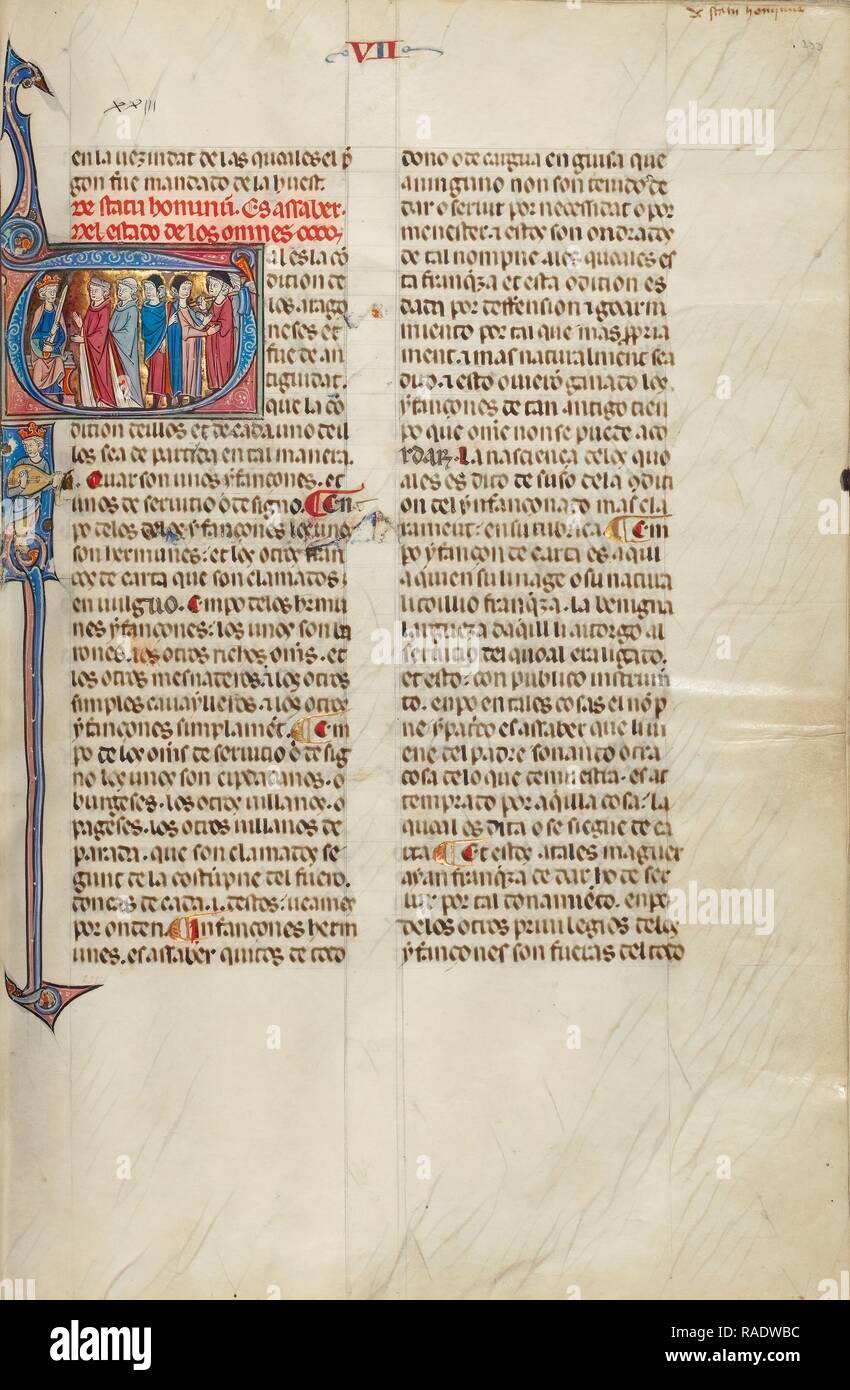 de statu hominum
VII
233
XXIII
en la uezindat de las quoales el p̄
gon fue mandado de la huest.
De statu hominū. Es assaber.
Del estado de los omnes
al es la cō
dition de
los arago
neses et
fue de an
tiguidat.
que la cō
dition deillos et de cada uno deil
los sea de partida en tal manera.
Quar son unos yfançones. et
unos de seruitio o de signo. En
po de los yfançones los unos
son hermunes: et los otros fran
cos de carta que son clamados
en uulguo. Empo de los hermu
nes yfançones: los unos son ba
rones. los otros richos oms. et
los otros mesnaderos. a los otros
simples cauaylleros. a los otros
yfançones simplament. Em
po de los oms de seruitio o de sig
no los unos son cipdadanos. o
burgeses. los otros uillanos. o
pageses. los otros uillanos de
parada. que son clamados se
gunt de la costupne del fuero.
doncas de cada .i. destos: ueamos
por orden. Infançones herm
unes. es assaber quitos de todo
dono o de cargua en guisa que
a ninguno non son tenidos de
dar o seruir por necessidat o por
menester. a estos son ondrados
de tal nompne. a los quoales es
ta franq̄za et esta odition es
dada por deffension
miento por tal que mas ppria
ment. a mas naturalment sea
a esto ouierō ganado los
yfançones de tan antigo tien
po que ome non se puede aco
rdar. La nascienca de los quo
ales es dito de suso de la 9diti
on del ynfançonado mas cla
rament: en su rubrica. Em
po yfançon de carta es aquil
a quien su linage o su natura
li toillio franq̄za. la benigna
largueza daq̄ill li autorgo al
seruitio del quoal era ligado.
et esto: con publico instrum̄
to. enpo en tales cosas el nō p
ne y parço es assaber que li ui
ene del padre sonando otra
cosa de lo que demuestra. es at
temprado por aq̄illa cosa: la
quoal es dita o se siegue de ca
rta. Et estos atales maguer
ayan franq̄za de dar ho de ser
uir por tal conamēto. enpo
de los otros priuilegios de los
yfançones son fueras del todo
alamy
Image ID: RADWBC
www.alamy.com